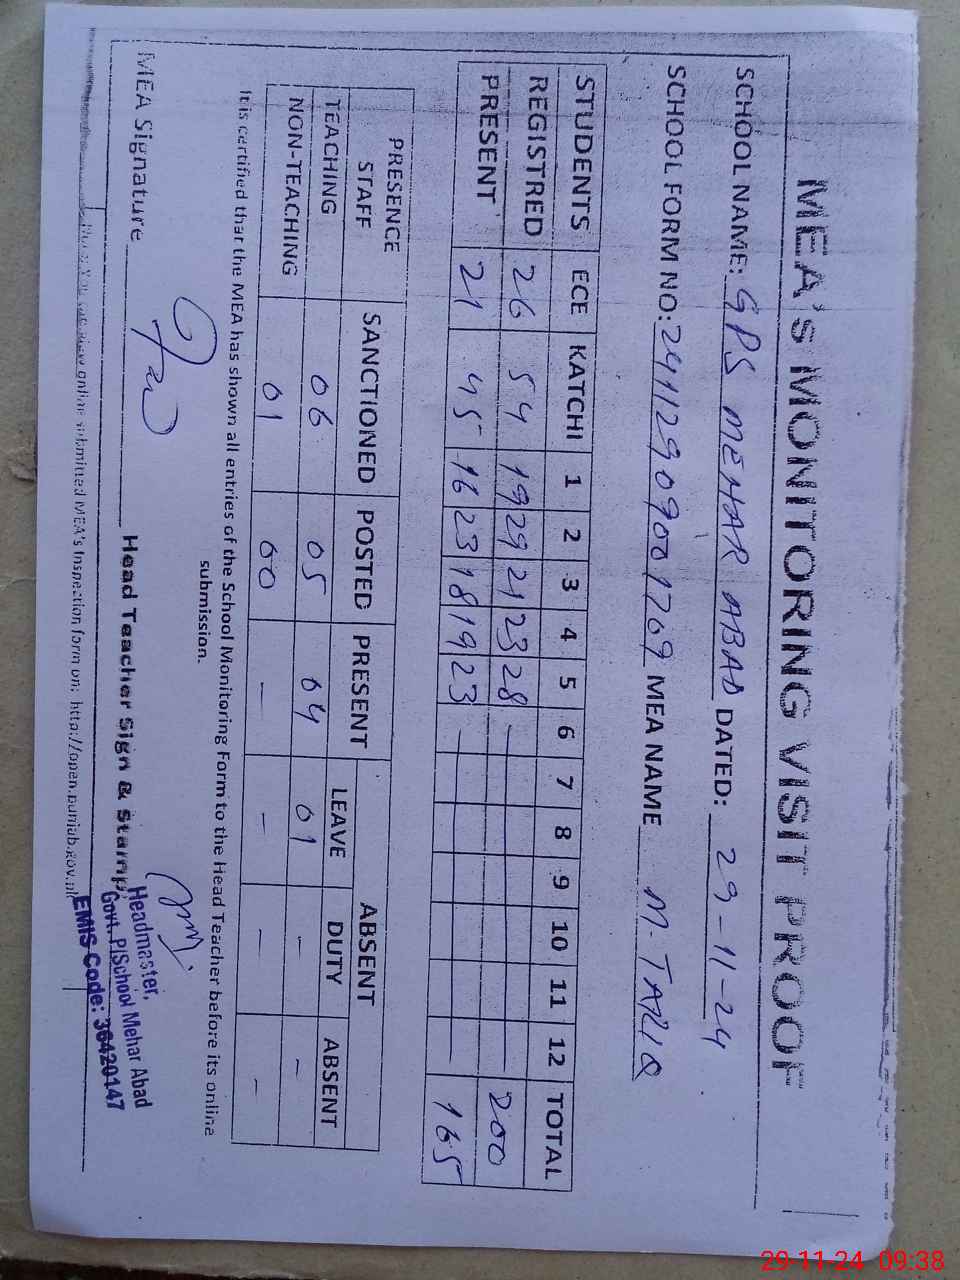 MEA's MONITORING VISIT PROOF
SCHOOL NAME: GPS MEHAR ABAD DATED: 29-11-24
SCHOOL FORM NO: 24112909001769 MEA NAME M. TARIQ
STUDENTS ECE KATCHI 1 2 3 4 5 6 7 8 9 10 11 12 TOTAL
REGISTRED 26 54 19 29 21 23 28 — 200
PRESENT 21 45 16 23 18 19 23 — 165
PRESENCE STAFF SANCTIONED POSTED PRESENT ABSENT
LEAVE DUTY ABSENT
TEACHING 06 05 04 01 - -
NON-TEACHING 01 00 - - - -
It is certified that the MEA has shown all entries of the School Monitoring Form to the Head Teacher before its online
submission.
MEA Signature Head Teacher Sign & Stamp
Headmaster,
Govt. P/School Mehar Abad
EMIS Code: 36420147
view online submitted MEA's Inspection form on: http://open.punjab.gov.
29-11-24 09:38